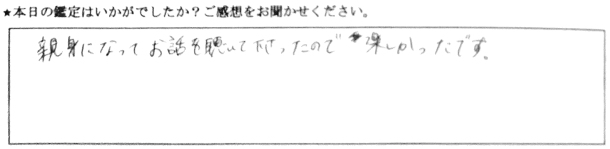 ★本日の鑑定はいかがでしたか?ご感想をお聞かせください。
親身になってお話を聴いて下さったので 楽しかったです。